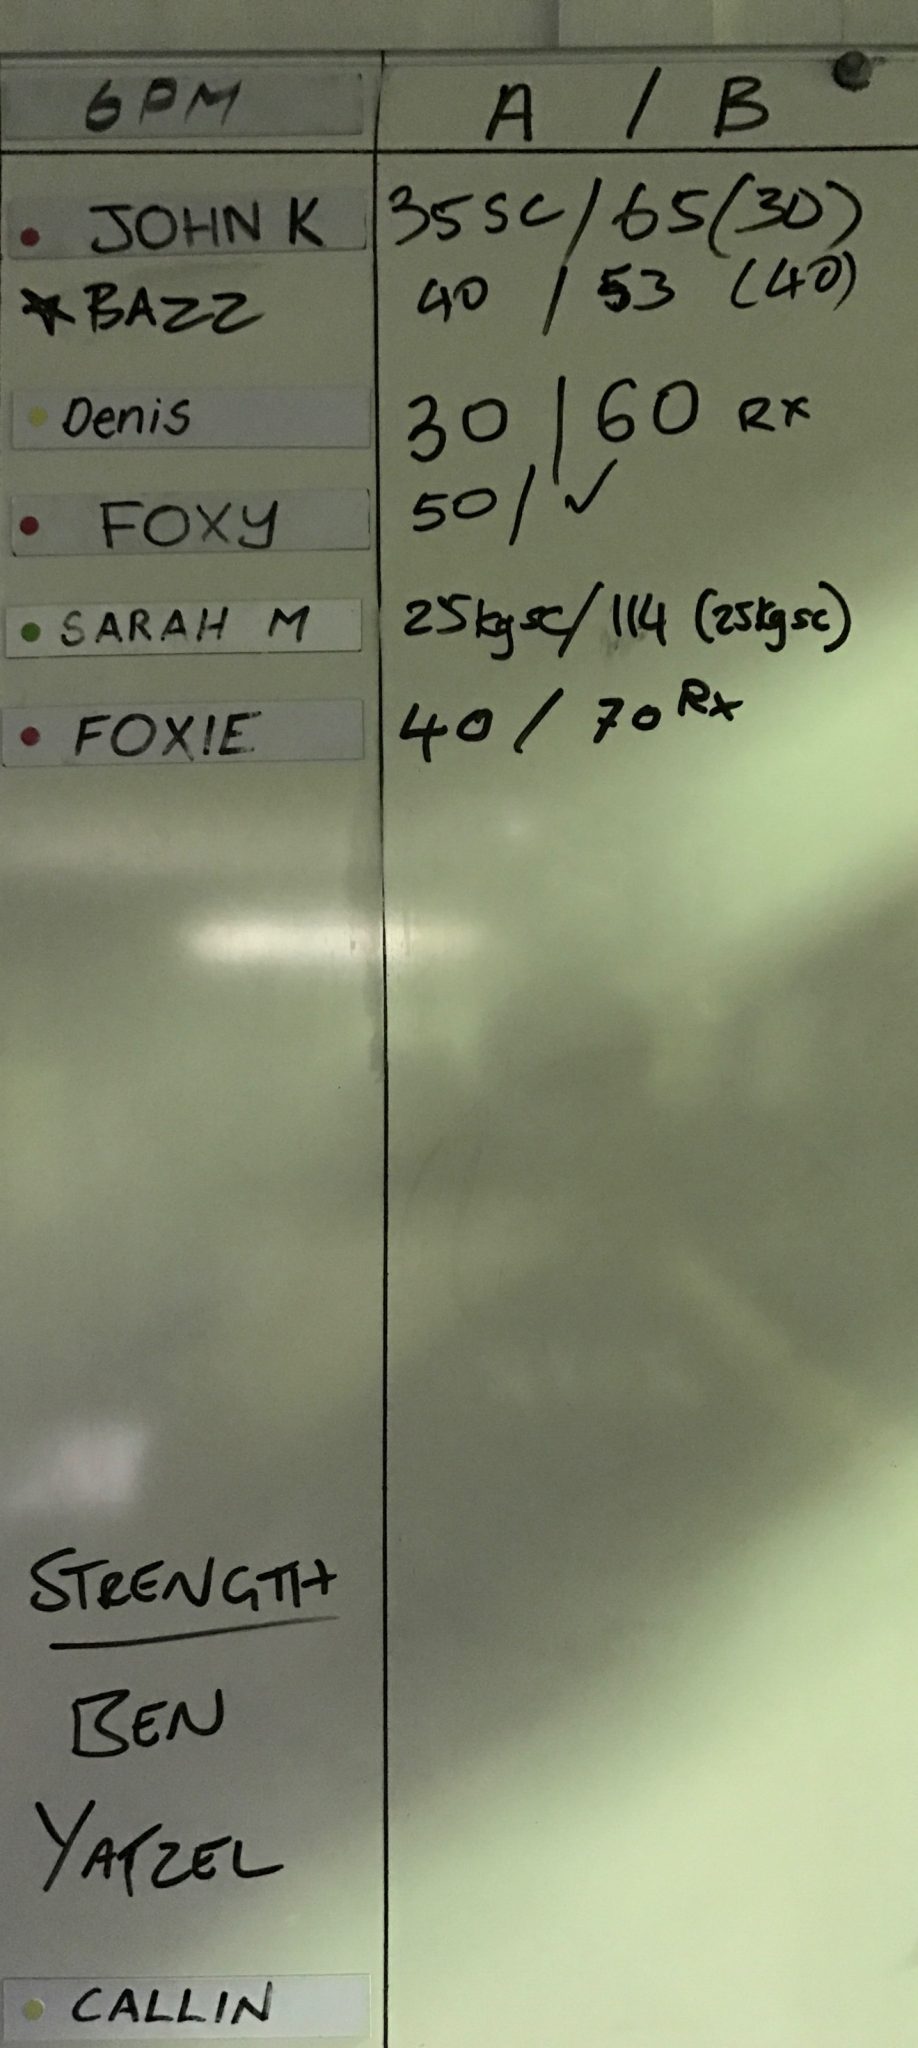 6PM A / B
JOHN K 35SC / 65 (30)
BAZZ 40 / 53 (40)
Denis 30 / 60 RX
FOXY 50 / ✓
SARAH M 25kgsc / 114 (25kgsc)
FOXIE 40 / 70 Rx
STRENGTH
BEN
YATZEL
CALLIN